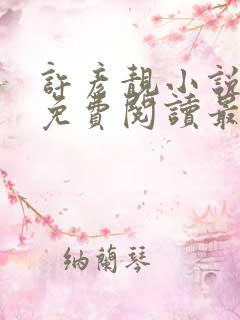 許彥靚小說
免費閱讀最
納蘭琴